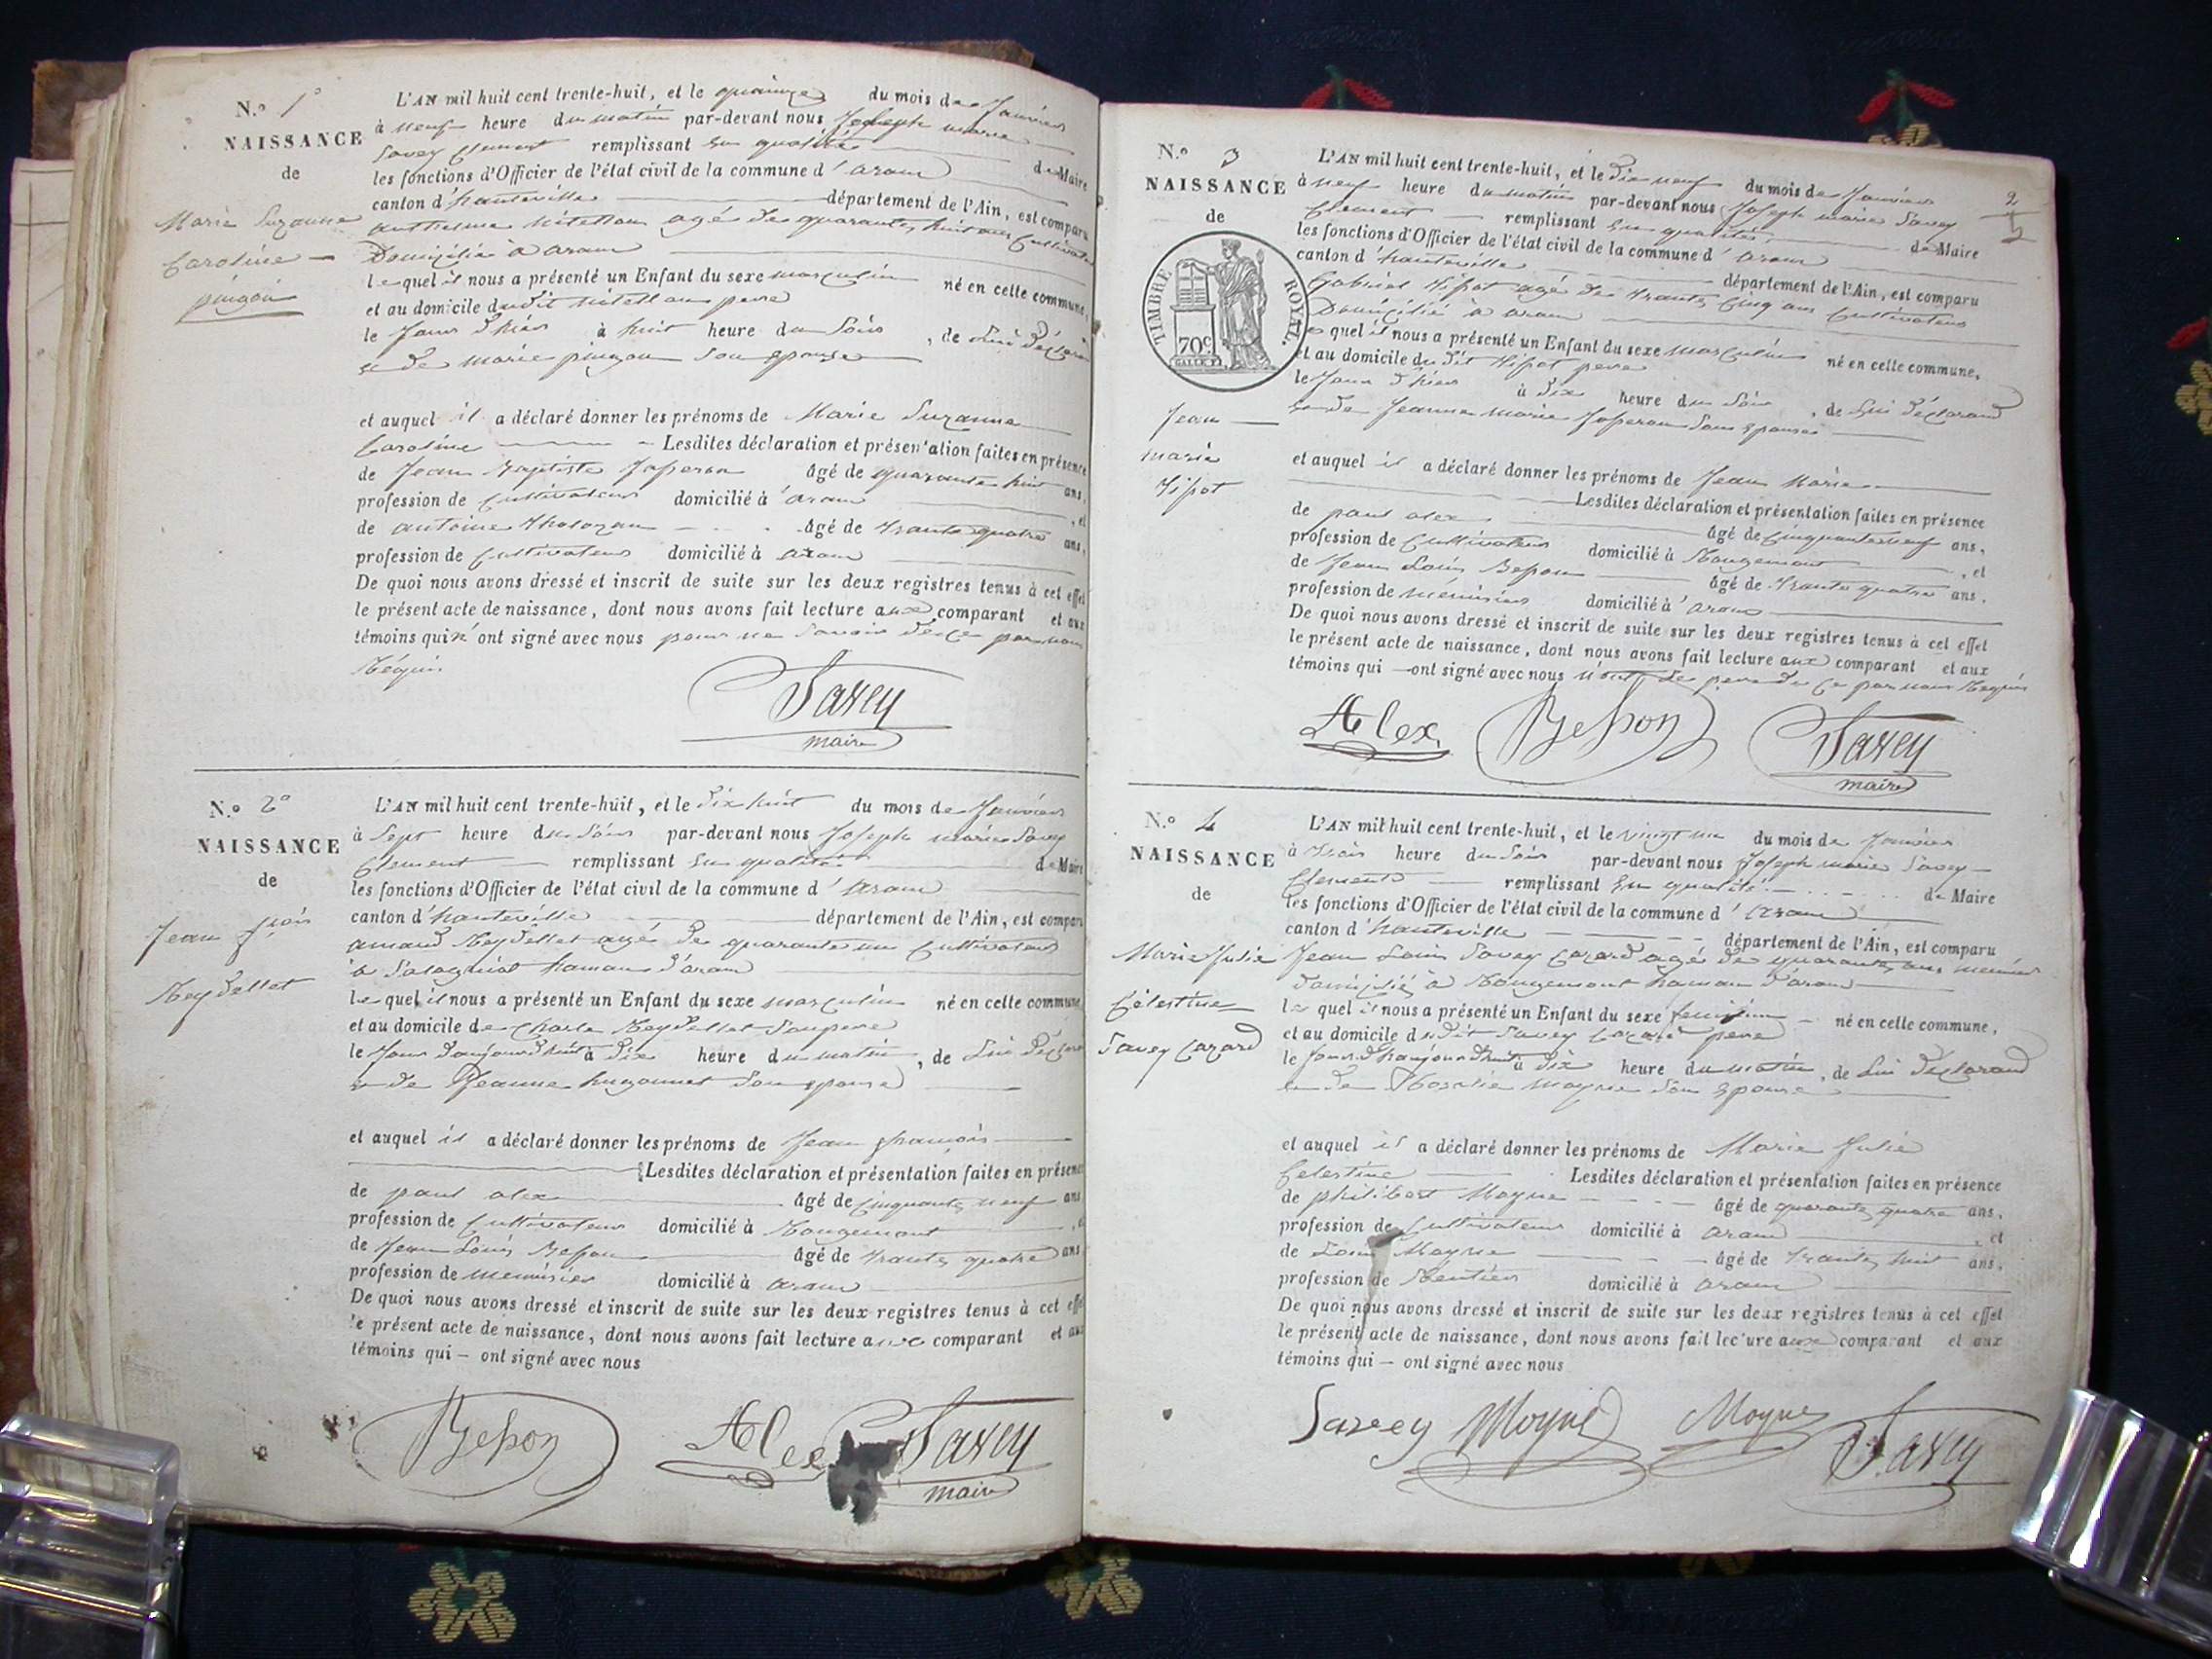 N.º 1º
NAISSANCE
de
Marie Suzanne
Caroline
pingon
L'AN mil huit cent trente-huit, et le quainze du mois de Janvier
à neuf heure du matin par-devant nous Joseph marie
Savey Clement remplissant en qualité de Maire
les fonctions d'Officier de l'état civil de la commune d'aranc
canton d'hauteville département de l'Ain, est comparu
anthelme agé de quarante huit ans Cultivateur
Domicilié à aranc
lequel il nous a présenté un Enfant du sexe masculin né en cette commune,
et au domicile dudit pere
le Jour d'hier à huit heure du Soir, de Lui déclarant
et de marie pingon Son Epouse
et auquel il a déclaré donner les prénoms de Marie Suzanne
Caroline Lesdites déclaration et présentation faites en présence
de Jean Baptiste Josseron âgé de quarante huit ans,
profession de Cultivateur domicilié à aranc, et
de antoine tholozan âgé de trante quatre ans,
profession de Cultivateur domicilié à aranc
De quoi nous avons dressé et inscrit de suite sur les deux registres tenus à cet effet
le présent acte de naissance, dont nous avons fait lecture aux comparant et aux
témoins qui n'ont signé avec nous pour ne Savoir de ce par nous
Réquis
Savey
maire
N.º 2º
NAISSANCE
de
Jean fçois
Reydellet
L'AN mil huit cent trente-huit, et le dix huit du mois de Janvier
à Sept heure du Soir par-devant nous Joseph marie Savey
Clement remplissant en qualité de Maire
les fonctions d'Officier de l'état civil de la commune d'aranc
canton d'hauteville département de l'Ain, est comparu
amand Reydellet agé de quarante un Cultivateur
à hamau d'aranc
lequel il nous a présenté un Enfant du sexe masculin né en cette commune,
et au domicile de Charle Reydellet Son pere
le Jour d'aujourd'hui à dix heure du matin, de Lui déclarant
et de Jeanne hugonnet Son epouse
et auquel il a déclaré donner les prénoms de Jean françois
Lesdites déclaration et présentation faites en présence
de paul alex âgé de Cinquante neuf ans
profession de Cultivateur domicilié à Rougemont, et
de Jean Louis Besson âgé de trante quatre ans
profession de menuisier domicilié à aranc
De quoi nous avons dressé et inscrit de suite sur les deux registres tenus à cet effet
le présent acte de naissance, dont nous avons fait lecture aux comparant et aux
témoins qui – ont signé avec nous
Besson Alex Savey
maire
2
N.º 3
NAISSANCE
de
TIMBRE ROYAL.
70c
Jean
marie
tissot
L'AN mil huit cent trente-huit, et le dix neuf du mois de Janvier
à neuf heure du matin par-devant nous Joseph marie Savey
Clement remplissant en qualité de Maire
les fonctions d'Officier de l'état civil de la commune d'aranc
canton d'hauteville département de l'Ain, est comparu
Gabriel tissot agé de trante Cinq ans Cultivateur
Domicilié à aranc
lequel il nous a présenté un Enfant du sexe masculin né en cette commune,
et au domicile du dit tissot pere
le Jour d'hier à dix heure du Soir, de Lui déclarand
et de Jeanne marie Josseron Sous Epouse
et auquel il a déclaré donner les prénoms de Jean Marie
Lesdites déclaration et présentation faites en présence
de paul alex âgé de cinquante neuf ans,
profession de Cultivateur domicilié à Rougemont, et
de Jean Louis Besson âgé de trante quatre ans.
profession de menuisier domicilié à aranc
De quoi nous avons dressé et inscrit de suite sur les deux registres tenus à cet effet
le présent acte de naissance, dont nous avons fait lecture aux comparant et aux
témoins qui – ont signé avec nous non le pere de ce par nous Requis
Alex Besson Savey
maire
N.º 4
NAISSANCE
de
Marie Julie
Célestine
Savey Cazard
L'AN mil huit cent trente-huit, et le vingt un du mois de Janvier
à trois heure du Soir par-devant nous Joseph marie Savey
Clement remplissant en qualité de Maire
les fonctions d'Officier de l'état civil de la commune d'aranc
canton d'hauteville département de l'Ain, est comparu
Jean Louis Savey Cazard agé de quarante ans
domicilié à Rougemont hamau d'aranc
lequel il nous a présenté un Enfant du sexe feminin né en cette commune,
et au domicile dudit Savey Cazard pere
le Jour d'haujourd'hui à dix heure du matin, de Lui déclarand
et de Rosalie Moyne Son Epouse
et auquel il a déclaré donner les prénoms de Marie Julie
Celestine Lesdites déclaration et présentation faites en présence
de philibert Moyne âgé de quarante quatre ans,
profession de Cultivateur domicilié à aranc, et
de Louis Moyne âgé de trante huit ans,
profession de Rentier domicilié à aranc
De quoi nous avons dressé et inscrit de suite sur les deux registres tenus à cet effet
le présent acte de naissance, dont nous avons fait lecture aux comparant et aux
témoins qui – ont signé avec nous
Savey Moyne Moyne Savey